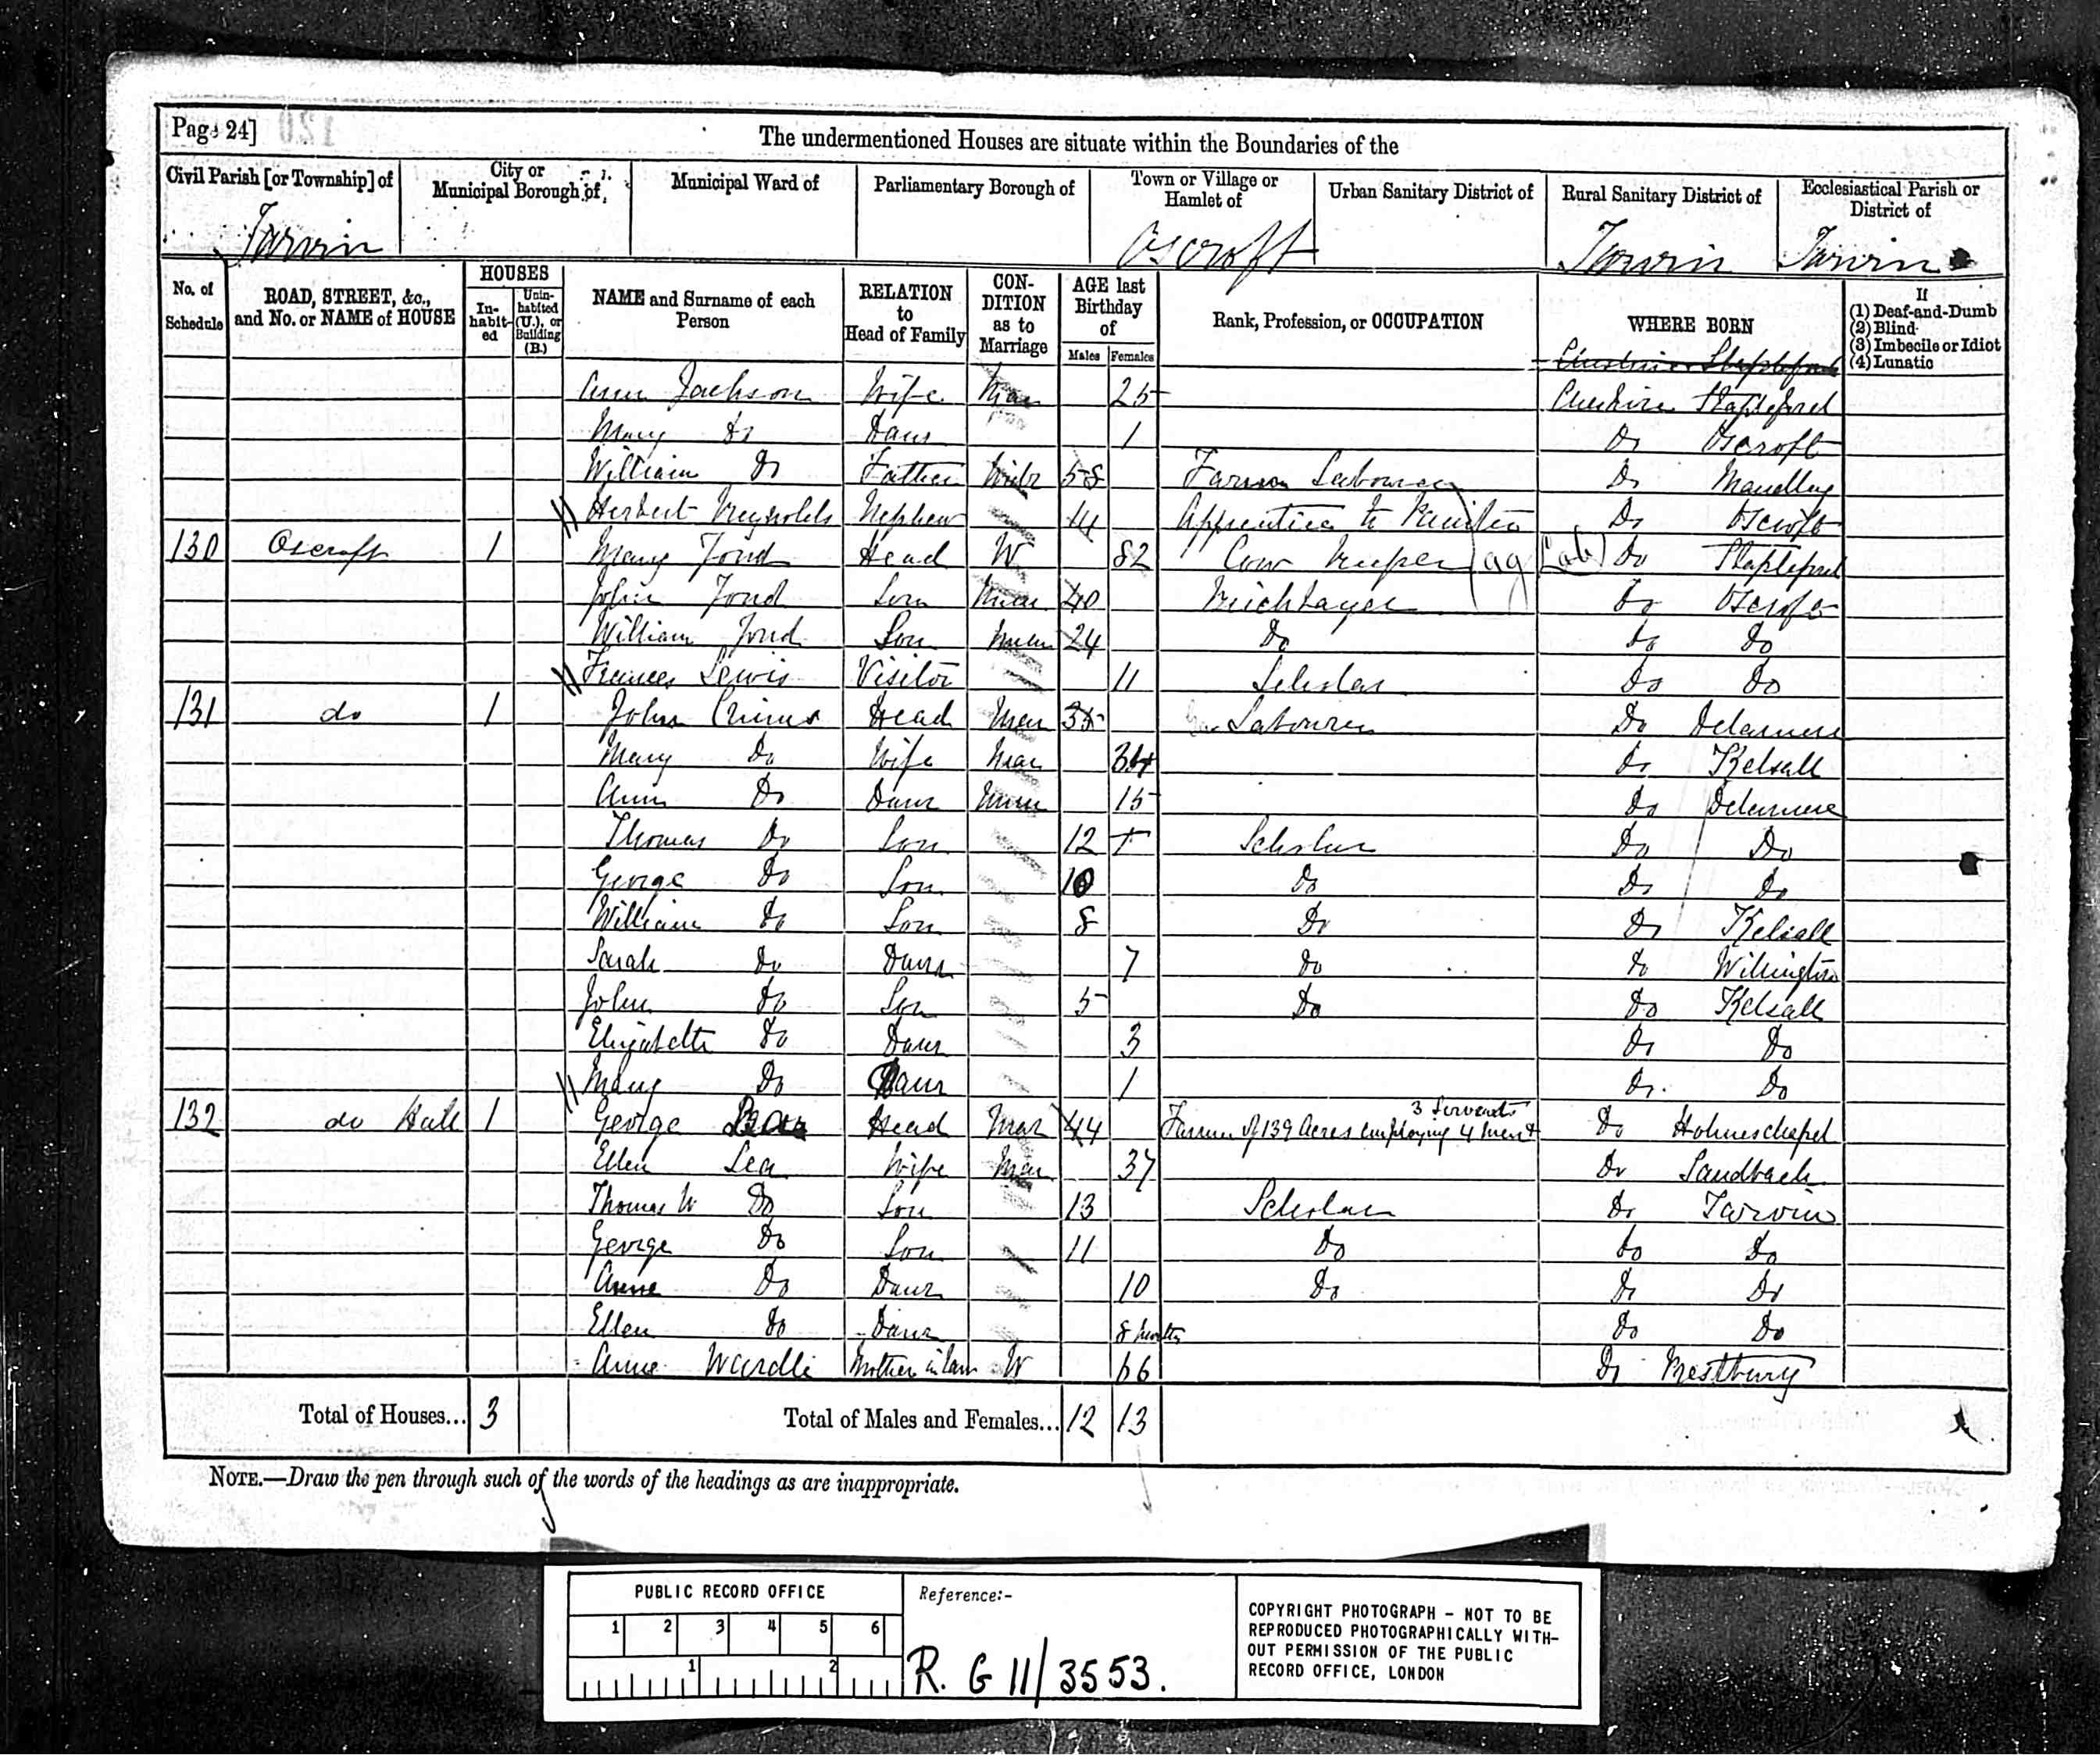 Page 24]
The undermentioned Houses are situate within the Boundaries of the
Civil Parish [or Township] of
City or Municipal Borough of
Municipal Ward of
Parliamentary Borough of
Town or Village or Hamlet of
Urban Sanitary District of
Rural Sanitary District of
Ecclesiastical Parish or District of
Tarvin Oscroft Tarvin Tarvin
No. of Schedule
ROAD, STREET, &c., and No. or NAME of HOUSE
HOUSES
In-habit-ed
Unin-habited (U.), or Building (B.)
NAME and Surname of each Person
RELATION to Head of Family
CON-DITION as to Marriage
AGE last Birthday of
Males Females
Rank, Profession, or OCCUPATION
WHERE BORN
If
(1) Deaf-and-Dumb
(2) Blind
(3) Imbecile or Idiot
(4) Lunatic
Ann Jackson Wife Mar 25 Cheshire Stapleford
Mary Do Daur 1 Do Oscroft
William Do Father Widr 58 Farm Labourer Do
Herbert Reynolds Nephew 14 Apprentice to Do Oscroft
130 Oscroft 1 Mary Ford Head W 82 Cow Keeper (ag Lab) Do Stapleford
John Ford Son 40 Bricklayer Do Oscroft
William Ford Son 24 Do Do Do
Frances Lewis Visitor 11 Scholar Do Do
131 do 1 John Head Mar 35 Labourer Do Delamere
Mary Do Wife Mar Do Kelsall
Ann Do Daur 15 Do Delamere
Thomas Do Son 12 Scholar Do Do
George Do Son 10 Do Do Do
William Do Son 8 Do Do Kelsall
Sarah Do Daur 7 Do Do Willington
John Do Son 5 Do Do Kelsall
Elizabeth Do Daur 3 Do Do
Mary Do Daur 1 Do Do
132 do Hall 1 George Lea Head Mar 44 Farmer of 139 Acres employing 4 men & 3 Servants Do Holmeschapel
Ellen Lea Wife Mar 37 Do Sandbach
Thomas W Do Son 13 Scholar Do Tarvin
George Do Son 11 Do Do Do
Anne Do Daur 10 Do Do Do
Ellen Do Daur 8 months Do Do
Anne Wardle Mother in law W 66 Do
Total of Houses... 3
Total of Males and Females... 12 13
NOTE.—Draw the pen through such of the words of the headings as are inappropriate.
PUBLIC RECORD OFFICE
1 2 3 4 5 6
1 2
Reference:-
R. G 11/3553.
COPYRIGHT PHOTOGRAPH - NOT TO BE
REPRODUCED PHOTOGRAPHICALLY WITH-
OUT PERMISSION OF THE PUBLIC
RECORD OFFICE, LONDON